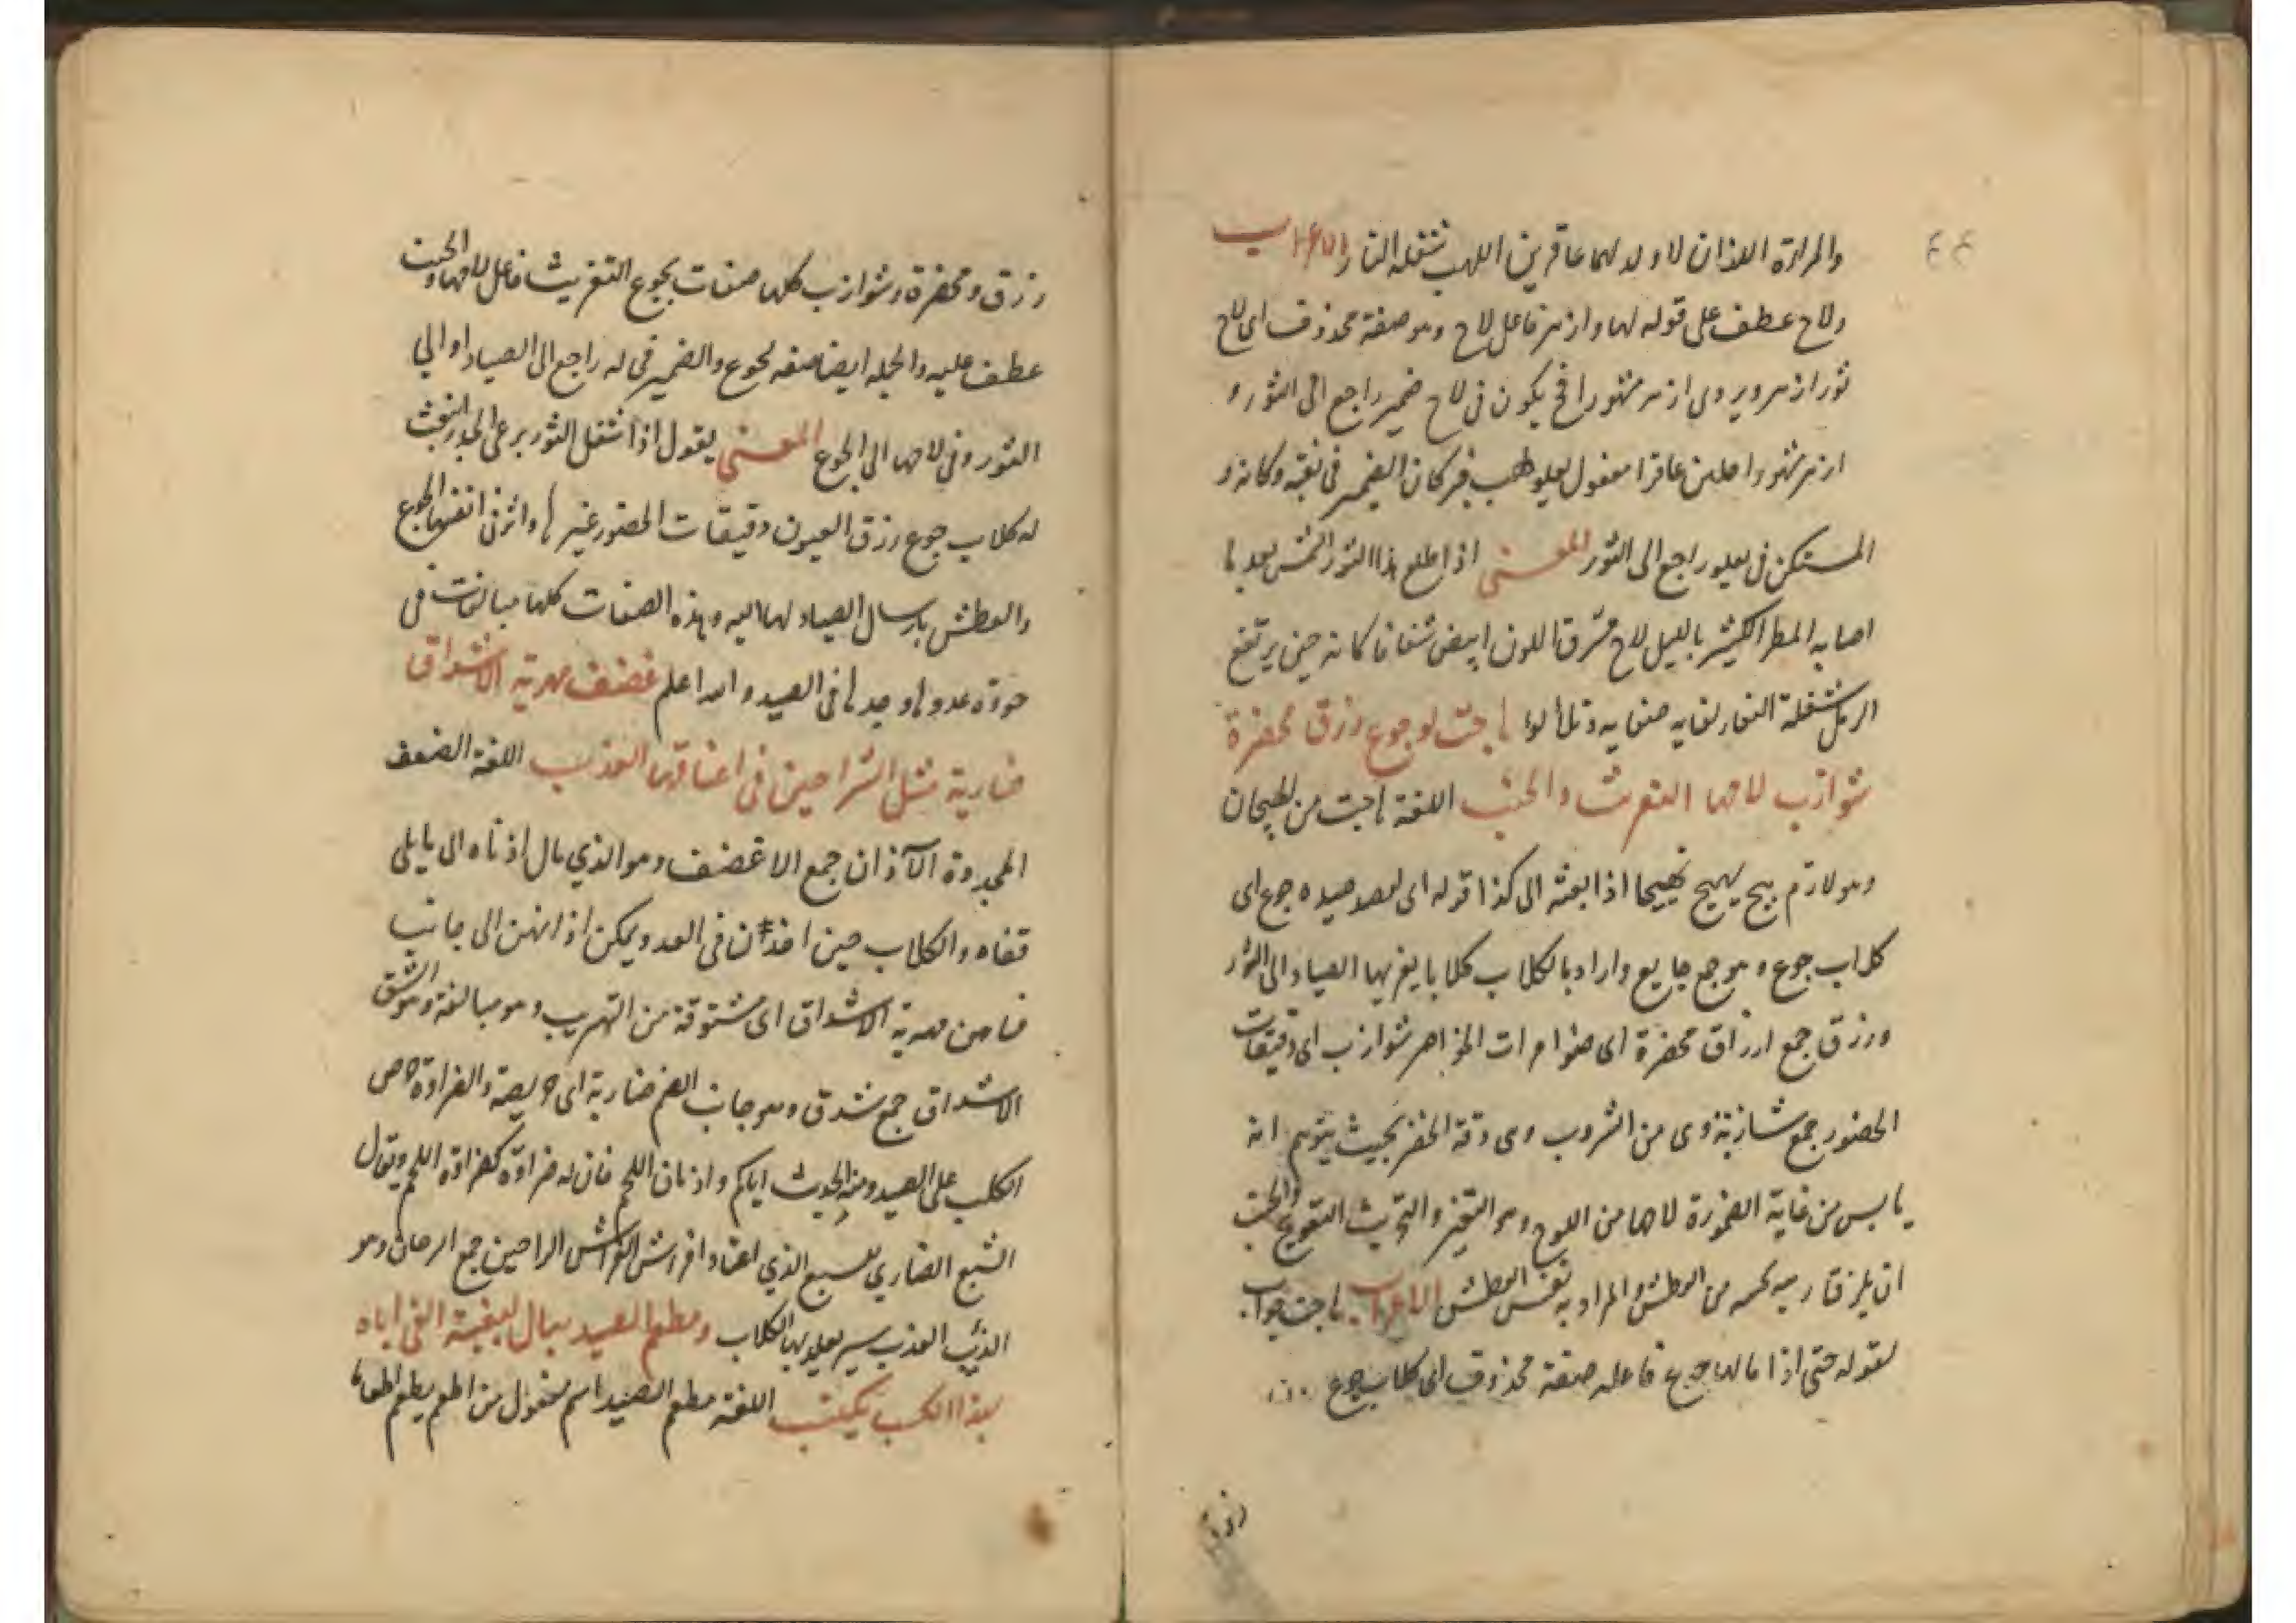 ٤٤
والمراة اللذان لا ولد لهما عاقرين اللهب شعلة النار الاعراب
ولاح عطف على قوله لها وازهر فاعل لاح وهو صفة محذوف اى لاح
ثور ازهر ويروى ازهر مشهورا فح يكون فى لاح ضمير راجع الى الثور و
ازهر مشهورا حالين عاقرا مفعول يعلو لهب خبر كان الضمير فى نقبته وكانه و
المستكن فى يعلو راجع الى الثور المعنى اذا طلع هذا الثور الشمس بعد ما
اصابه المطر الكثير بالليل لاح مشرق اللون ابيض شفافا كانه حين يرتفع
الرمل شعلة النار لغايه صفايه وتلألؤا هاجت له جوع زرق مخصرة
شوازب لاحها التغريث والجنب اللغة هاجت من الهيجان
وهو لازم هيج يهيج تهييجا اذا بعثه الى كذا قوله اى لصيده جوع اى
كلاب جوع وهو جمع جايع واراد بالكلاب كلابا يغريها الصياد الى الثور
وزرق جمع ازراق مخصرة اى ضوامرات الخواصر شوازب اى دقيقات
الخصور جمع شازبة وهى من الشزوب وهى دقة الخصر بحيث يتوهم انه
يابس من غاية الضمورة لاحها من اللوح وهو التغير والتغريث التجويع والجنب
ان يلزق من العطش والمراد به نفس العطش الاعراب هاجت جواب
لقوله حتى اذا مالها جوع فاعله صفة محذوف اى كلاب جوع
زرق
زرق ومخصرة وشوازب كلها صفات لجوع التغريث فاعل لاحها والجنب
عطف عليه والجمله ايضا صفه لجوع والضمير فى له راجع الى الصياد او الى
الثور وفى لاحها الى الجوع المعنى يقول اذا اشتغل الثور برعى الجدر انبعث
له كلاب جوع زرق العيون دقيقات الخصور غيرها واثر فى انفسها الجوع
والعطش بارسال الصياد لها اليه وهذه الصفات كلها مبالغات فى
جودة عدوها وجدها فى الصيد والله اعلم غضف مهرتة الاشداق
ضارية مثل السراحين فى اعناقها العذب اللغة الغضف
الآذان جمع الاغضف وهو الذي مال اذناه الى ما يلى
قفاه والكلاب حين اخذن فى العدو يمكن اذانهن الى جانب
قفاهن مهرتة الاشداق اى مشقوقة من التهريب وهو مبالغة وهو الشق
الاشداق جمع شدق وهو جانب الفم ضارية اى حريصة والضراوة حرص
الكلب على الصيد ومنه الحديث اياكم واذناف اللحم فان له ضراوة كضراوة اللحم ويقال
السبع الضاري للسبع الذي اعتاد افتراس الفرائس السراحين جمع السرحان وهو
الذئب العذب سير يعلو بها الكلاب ومطعم الصيد هبال لبغيته الفى اباه
بهذا الكسب يكتسب اللغة مطعم الصيد اسم مفعول من اطعم يطعم اطعاما